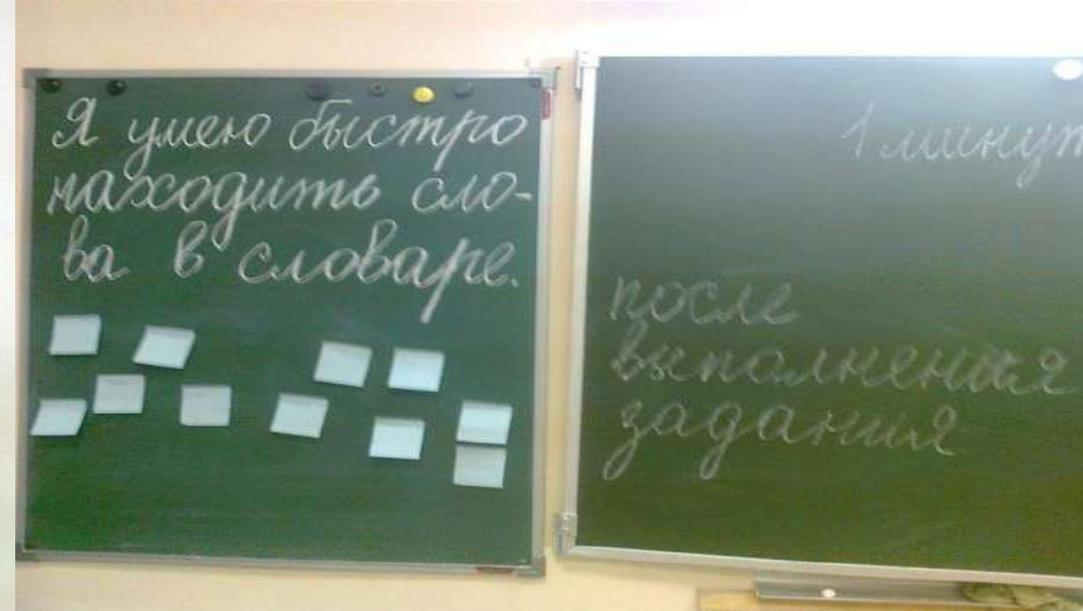 Я умею быстро
находить сло-
ва в словаре.
1 минут
после
выполнения
задания